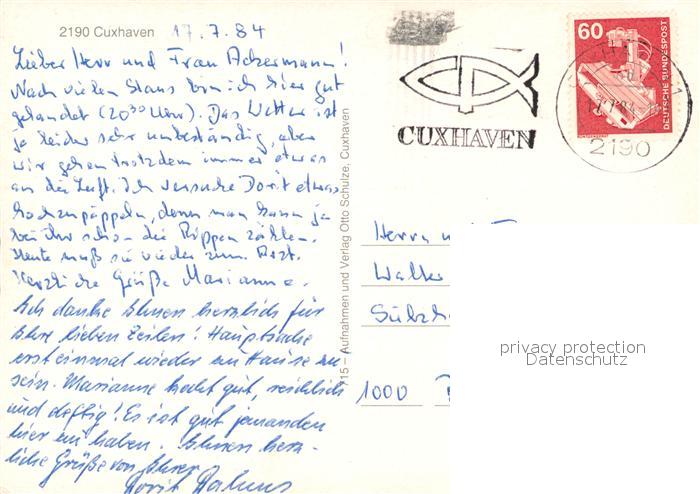 2190 Cuxhaven
17.7.84
Lieber Herr und Frau Ackermann!
Nach vielen Staus bin ich hier gut
gelandet (20³⁰ Uhr). Das Wetter ist
ja leider sehr unbeständig, aber
wir gehen trotzdem immer etwas
an die Luft. Ich versuche Dorit etwas
hochzupäppeln, denn man kann ja
bei ihr schon die Rippen zählen.
Heute muß sie wieder zum Arzt.
Herzliche Grüße Marianne.
Ich danke Ihnen herzlich für
Ihre lieben Zeilen! Hauptsache
ersteinmal wieder zu Hause zu
sein. Marianne kocht gut, reichlich
und deftig! Es ist gut jemanden
hier zu haben. Ihnen herz-
liche Grüße von Ihrer
Dorit
15 – Aufnahmen und Verlag Otto Schulze, Cuxhaven
CUXHAVEN
60
DEUTSCHE BUNDESPOST
17.7.84
2190
Herrn
Walter
1000
privacy protection
Datenschutz